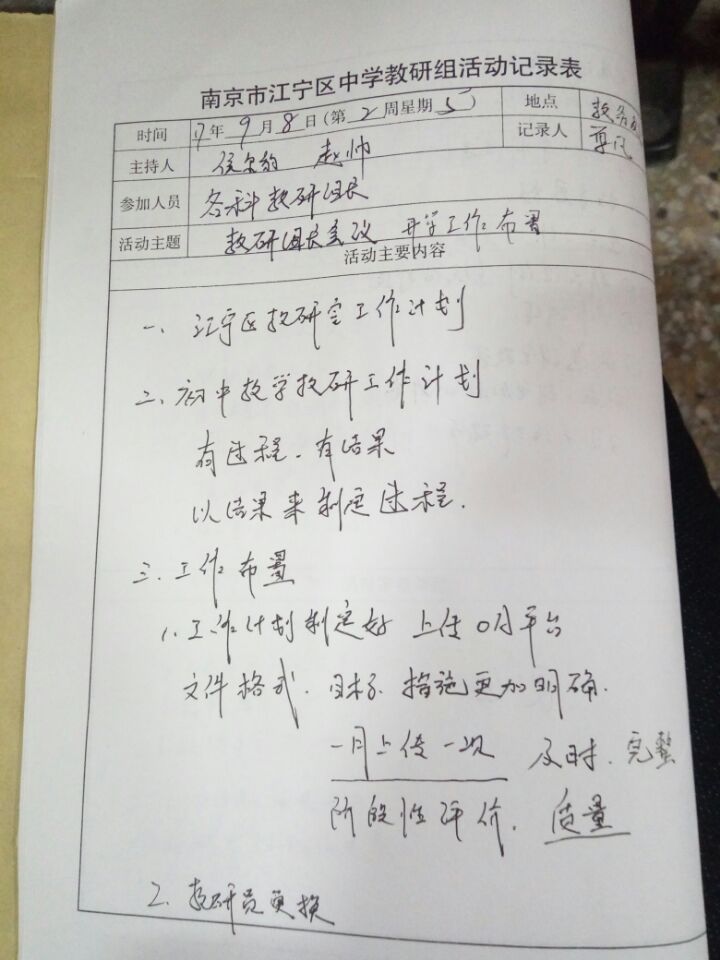 南京市江宁区中学教研组活动记录表
时间 17年9月8日(第2周星期五) 地点 教务处
主持人 赵帅 记录人
参加人员 各科教研组长
活动主题 教研组长会议 开学工作布置
活动主要内容
一、江宁区教研室工作计划
二、初中教学教研工作计划
有过程.有结果
以结果来制定过程.
三.工作布置
1.工作计划制定好 上传 平台
文件格式.目标.措施更加明确.
一月上传一次 及时.完整
阶段性评价.质量
2.教研员更换